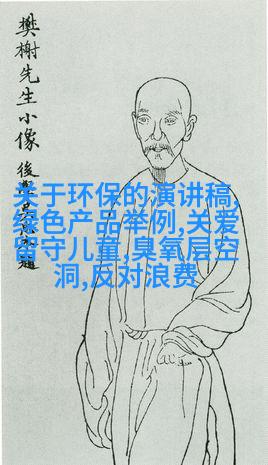 樊榭先生小像
後
题
关于环保的演讲稿,
绿色产品举例,关爱
留守儿童,臭氧层空
洞,反对浪费